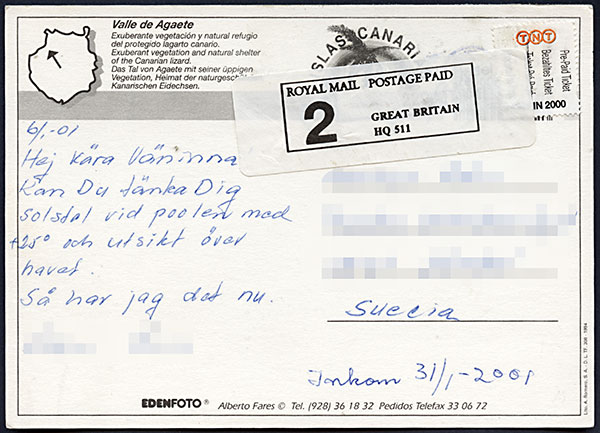 Valle de Agaete
Exuberante vegetación y natural refugio
del protegido lagarto canario.
Exuberant vegetation and natural shelter
of the Canarian lizard.
Das Tal von Agaete mit seiner üppigen
Vegetation, Heimat der naturgesch
Kanarischen Eidechsen.
ISLAS CANARI
TNT
Pre-Paid Ticket
Bezahltes Ticket
IN 2000
ROYAL MAIL POSTAGE PAID
2
GREAT BRITAIN
HQ 511
6/1-01
Hej Kära Väninna
Kan Du tänka Dig
solstol vid poolen med
+25° och utsikt över
havet.
Så har jag det nu.
Suecia
Inkom 31/1-2001
EDENFOTO® Alberto Fares © Tel. (928) 36 18 32 Pedidos Telefax 33 06 72